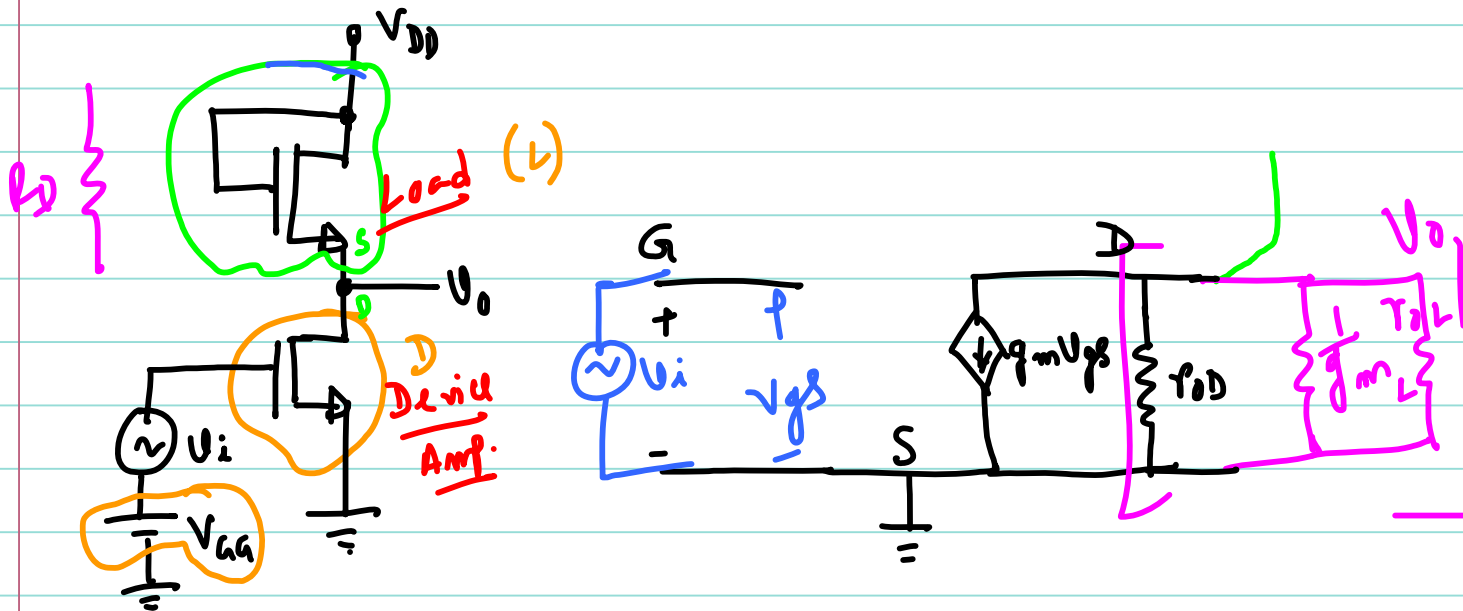 V_DD
R_D
Load
(L)
S
V_o
D
D
Device
Amp.
v_i
V_GG
G
+
v_i
Vgs
-
S
D
g_m Vgs
r_oD
1/g_mL
r_oL
V_o